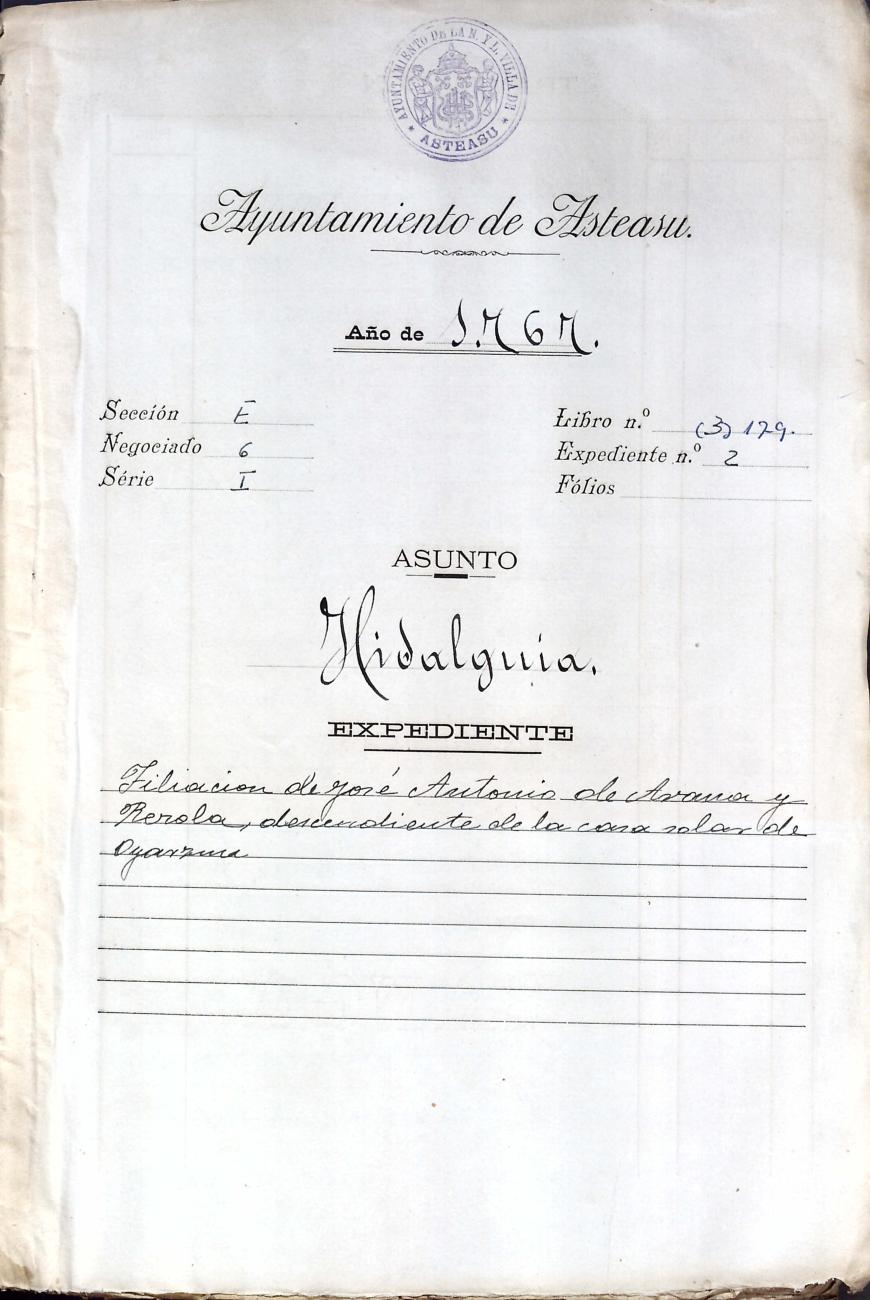 AYUNTAMIENTO DE LA N. Y L. VILLA DE
* ASTEASU *
Ayuntamiento de Asteasu.
Año de 1.767.
Sección E
Negociado 6
Série I
Libro n.º (3) 179.
Expediente n.º 2
Fólios
ASUNTO
Hidalguia.
EXPEDIENTE
Filiacion de José Antonio de Arana y
descendiente de la casa solar de